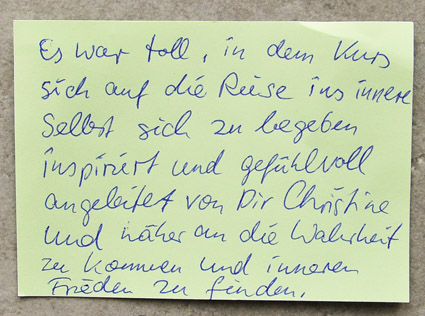 Es war toll, in dem Kurs
sich auf die Reise ins innere
Selbst sich zu begeben
inspiriert und gefühlvoll
angeleitet von Dir Christine
und näher an die Wahrheit
zu kommen und inneren
Frieden zu finden.